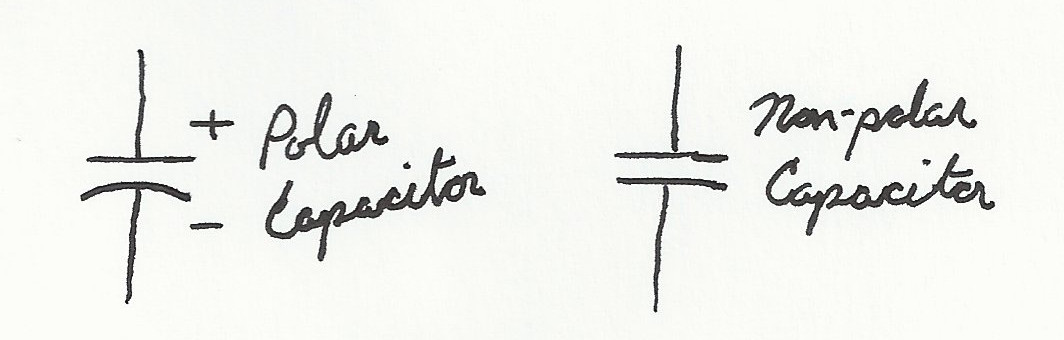 + Polar
Capacitor
-
Non-polar
Capacitor